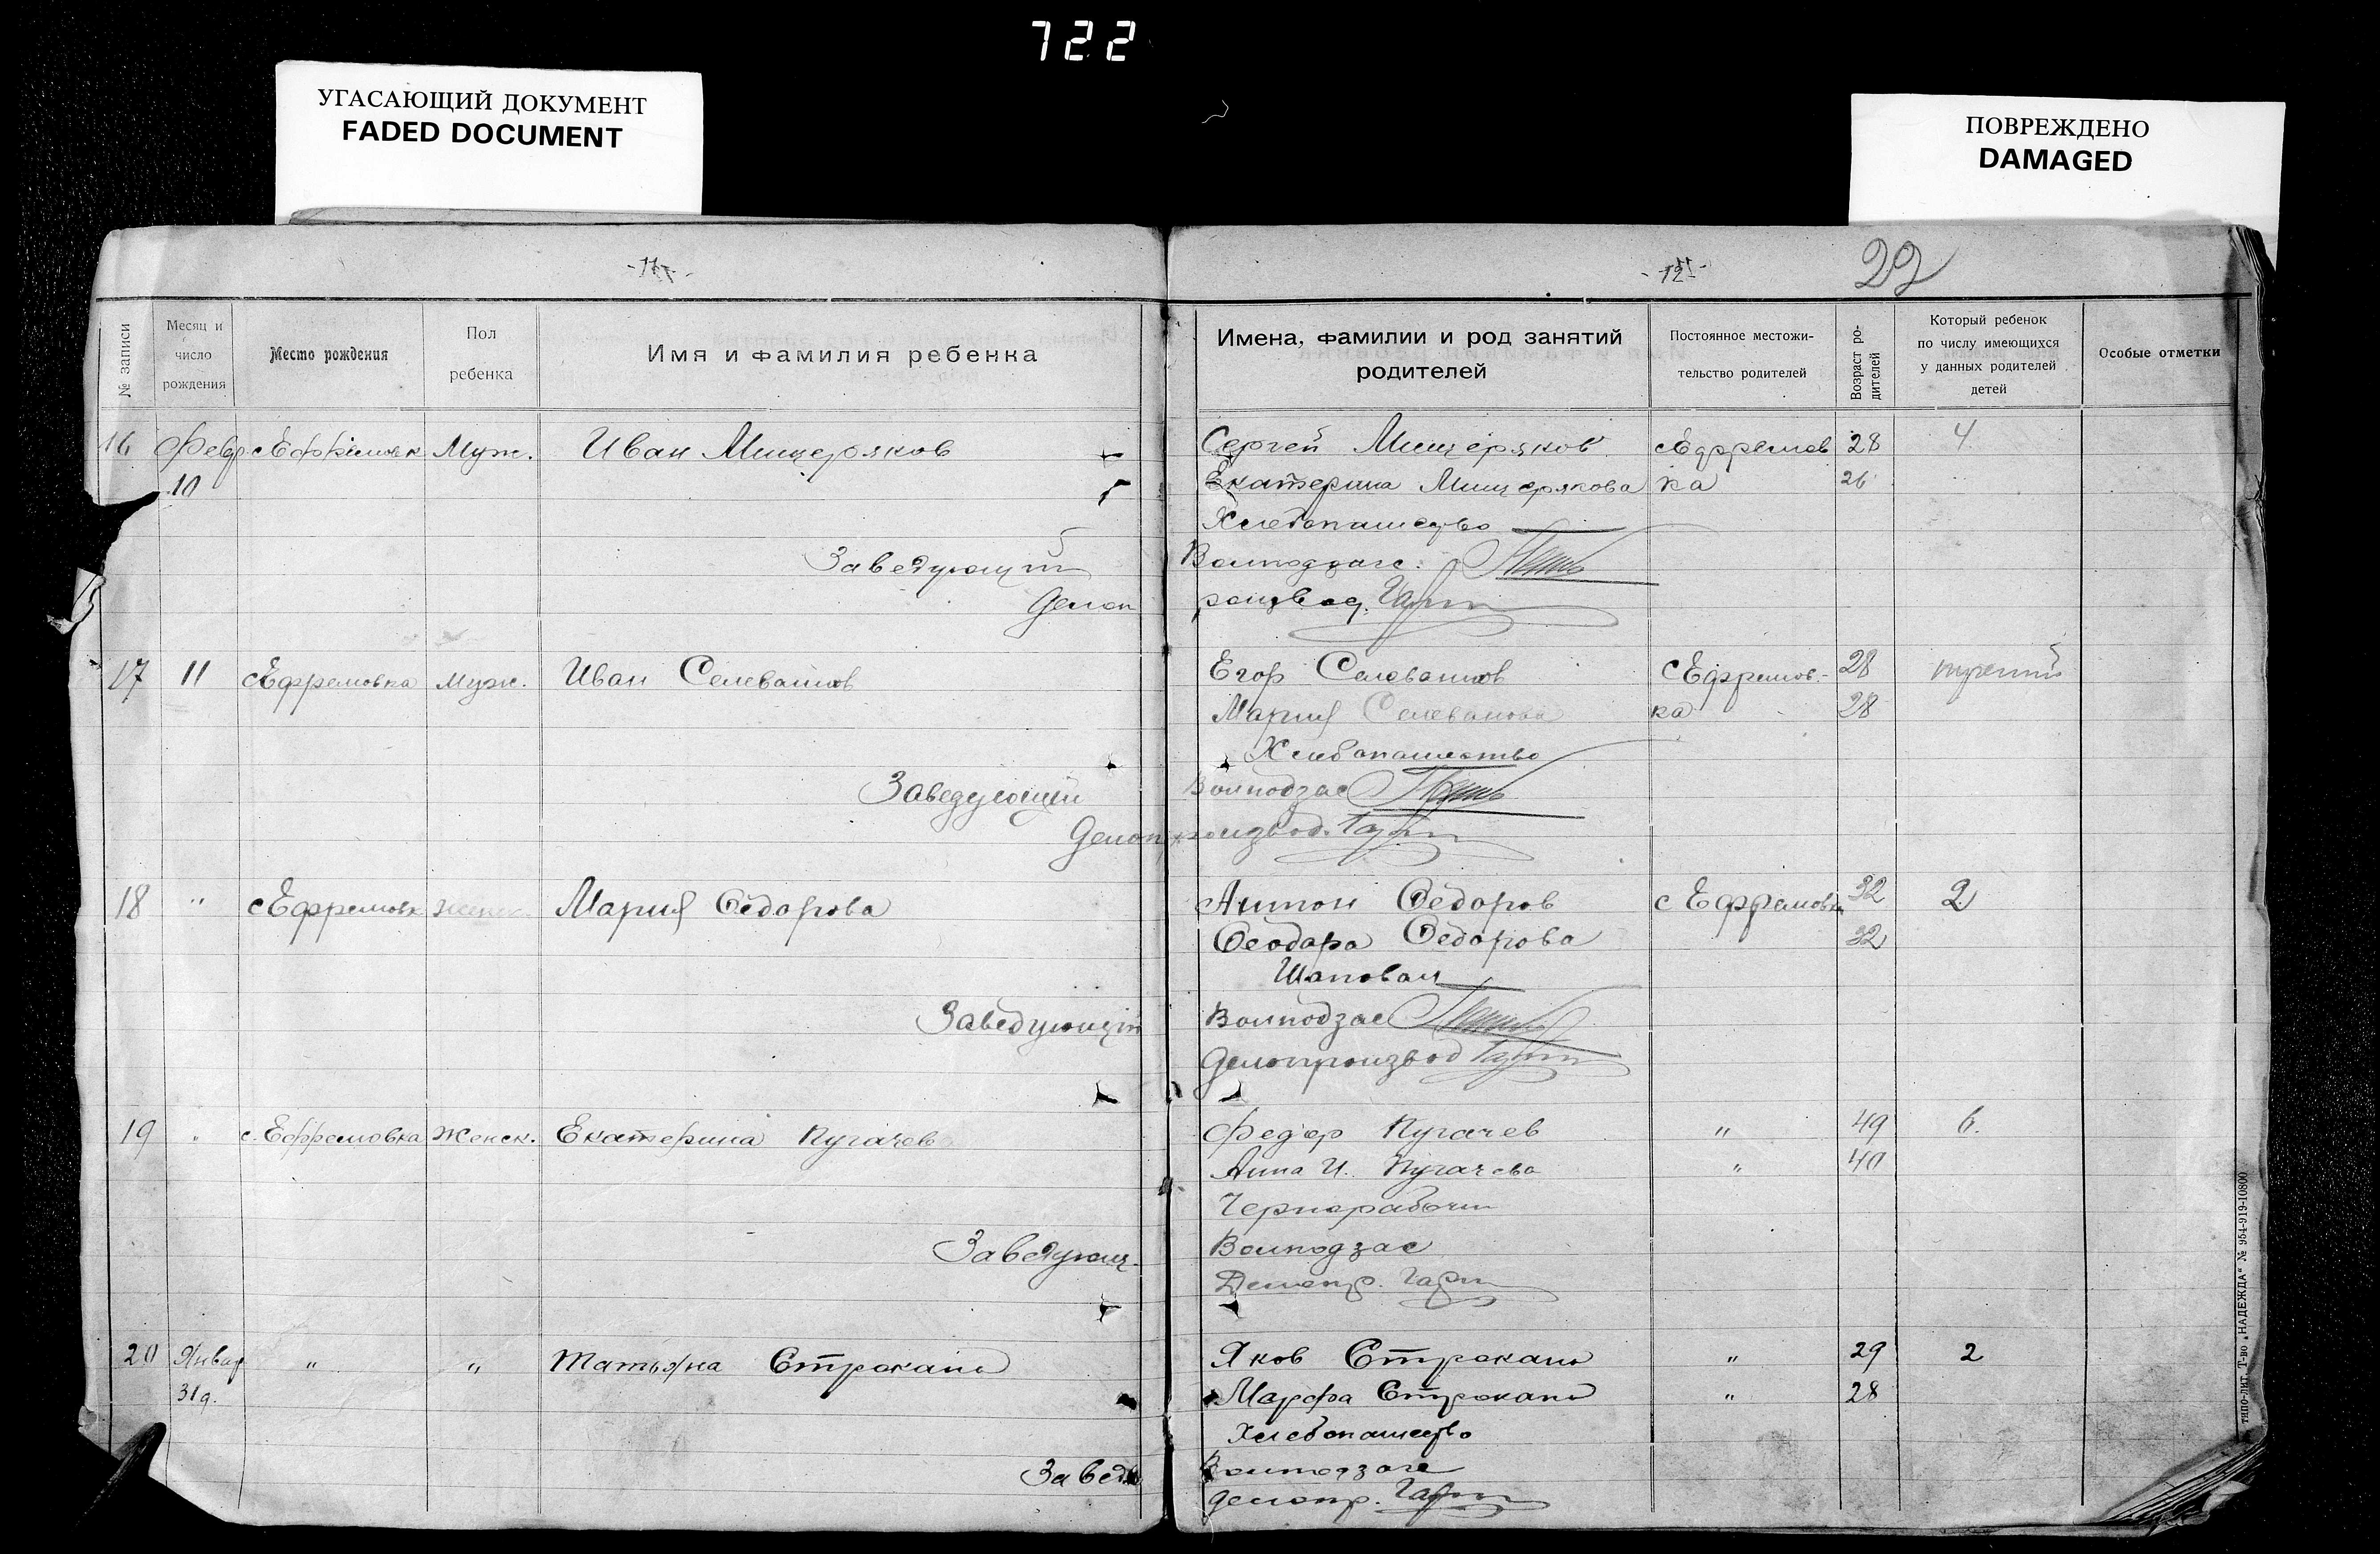 722
УГАСАЮЩИЙ ДОКУМЕНТ
FADED DOCUMENT
ПОВРЕЖДЕНО
DAMAGED
22
№ записи
Месяц и число рождения
Место рождения
Пол ребенка
Имя и фамилия ребенка
Имена, фамилии и род занятий родителей
Постоянное местожительство родителей
Возраст родителей
Который ребенок по числу имеющихся у данных родителей детей
Особые отметки
16 Февр. с Ефремовк Муж. Иван Мищеряков Сергей Мищеряков с Ефремов 28 4.
10 Екатерина Мищерякова ка 26
Хлебопашество
Заведующий Волподзагс.
Делоп роизвод.
17 11 с Ефремовка муж. Иван Селеванов Егор Селеванов с Ефремов- 28 третий
Мария Селеванова ка 28
Хлебопашество
Заведующий Волподзас
Делопроизвод.
18 " с Ефремовк женск. Мария Федорова Антон Федоров с Ефремовка 32 2
Феодора Федорова 32
Шаповал
Заведующий Волподзас
Делопроизвод
19 " с. Ефремовка Женск. Екатерина Пугачев Федор Пугачев " 49 6.
Анна И. Пугачева " 40
Чернорабочий
Заведующ. Волподзас
Делопр.
20 Январ " " Татьяна Строкань Яков Строкань " 29 2
31 д. Марфа Строкань " 28
Хлебопашество
Завед Волподзаге
Делопр.
типо-лит. Т-во „НАДЕЖДА" № 954-919-10800